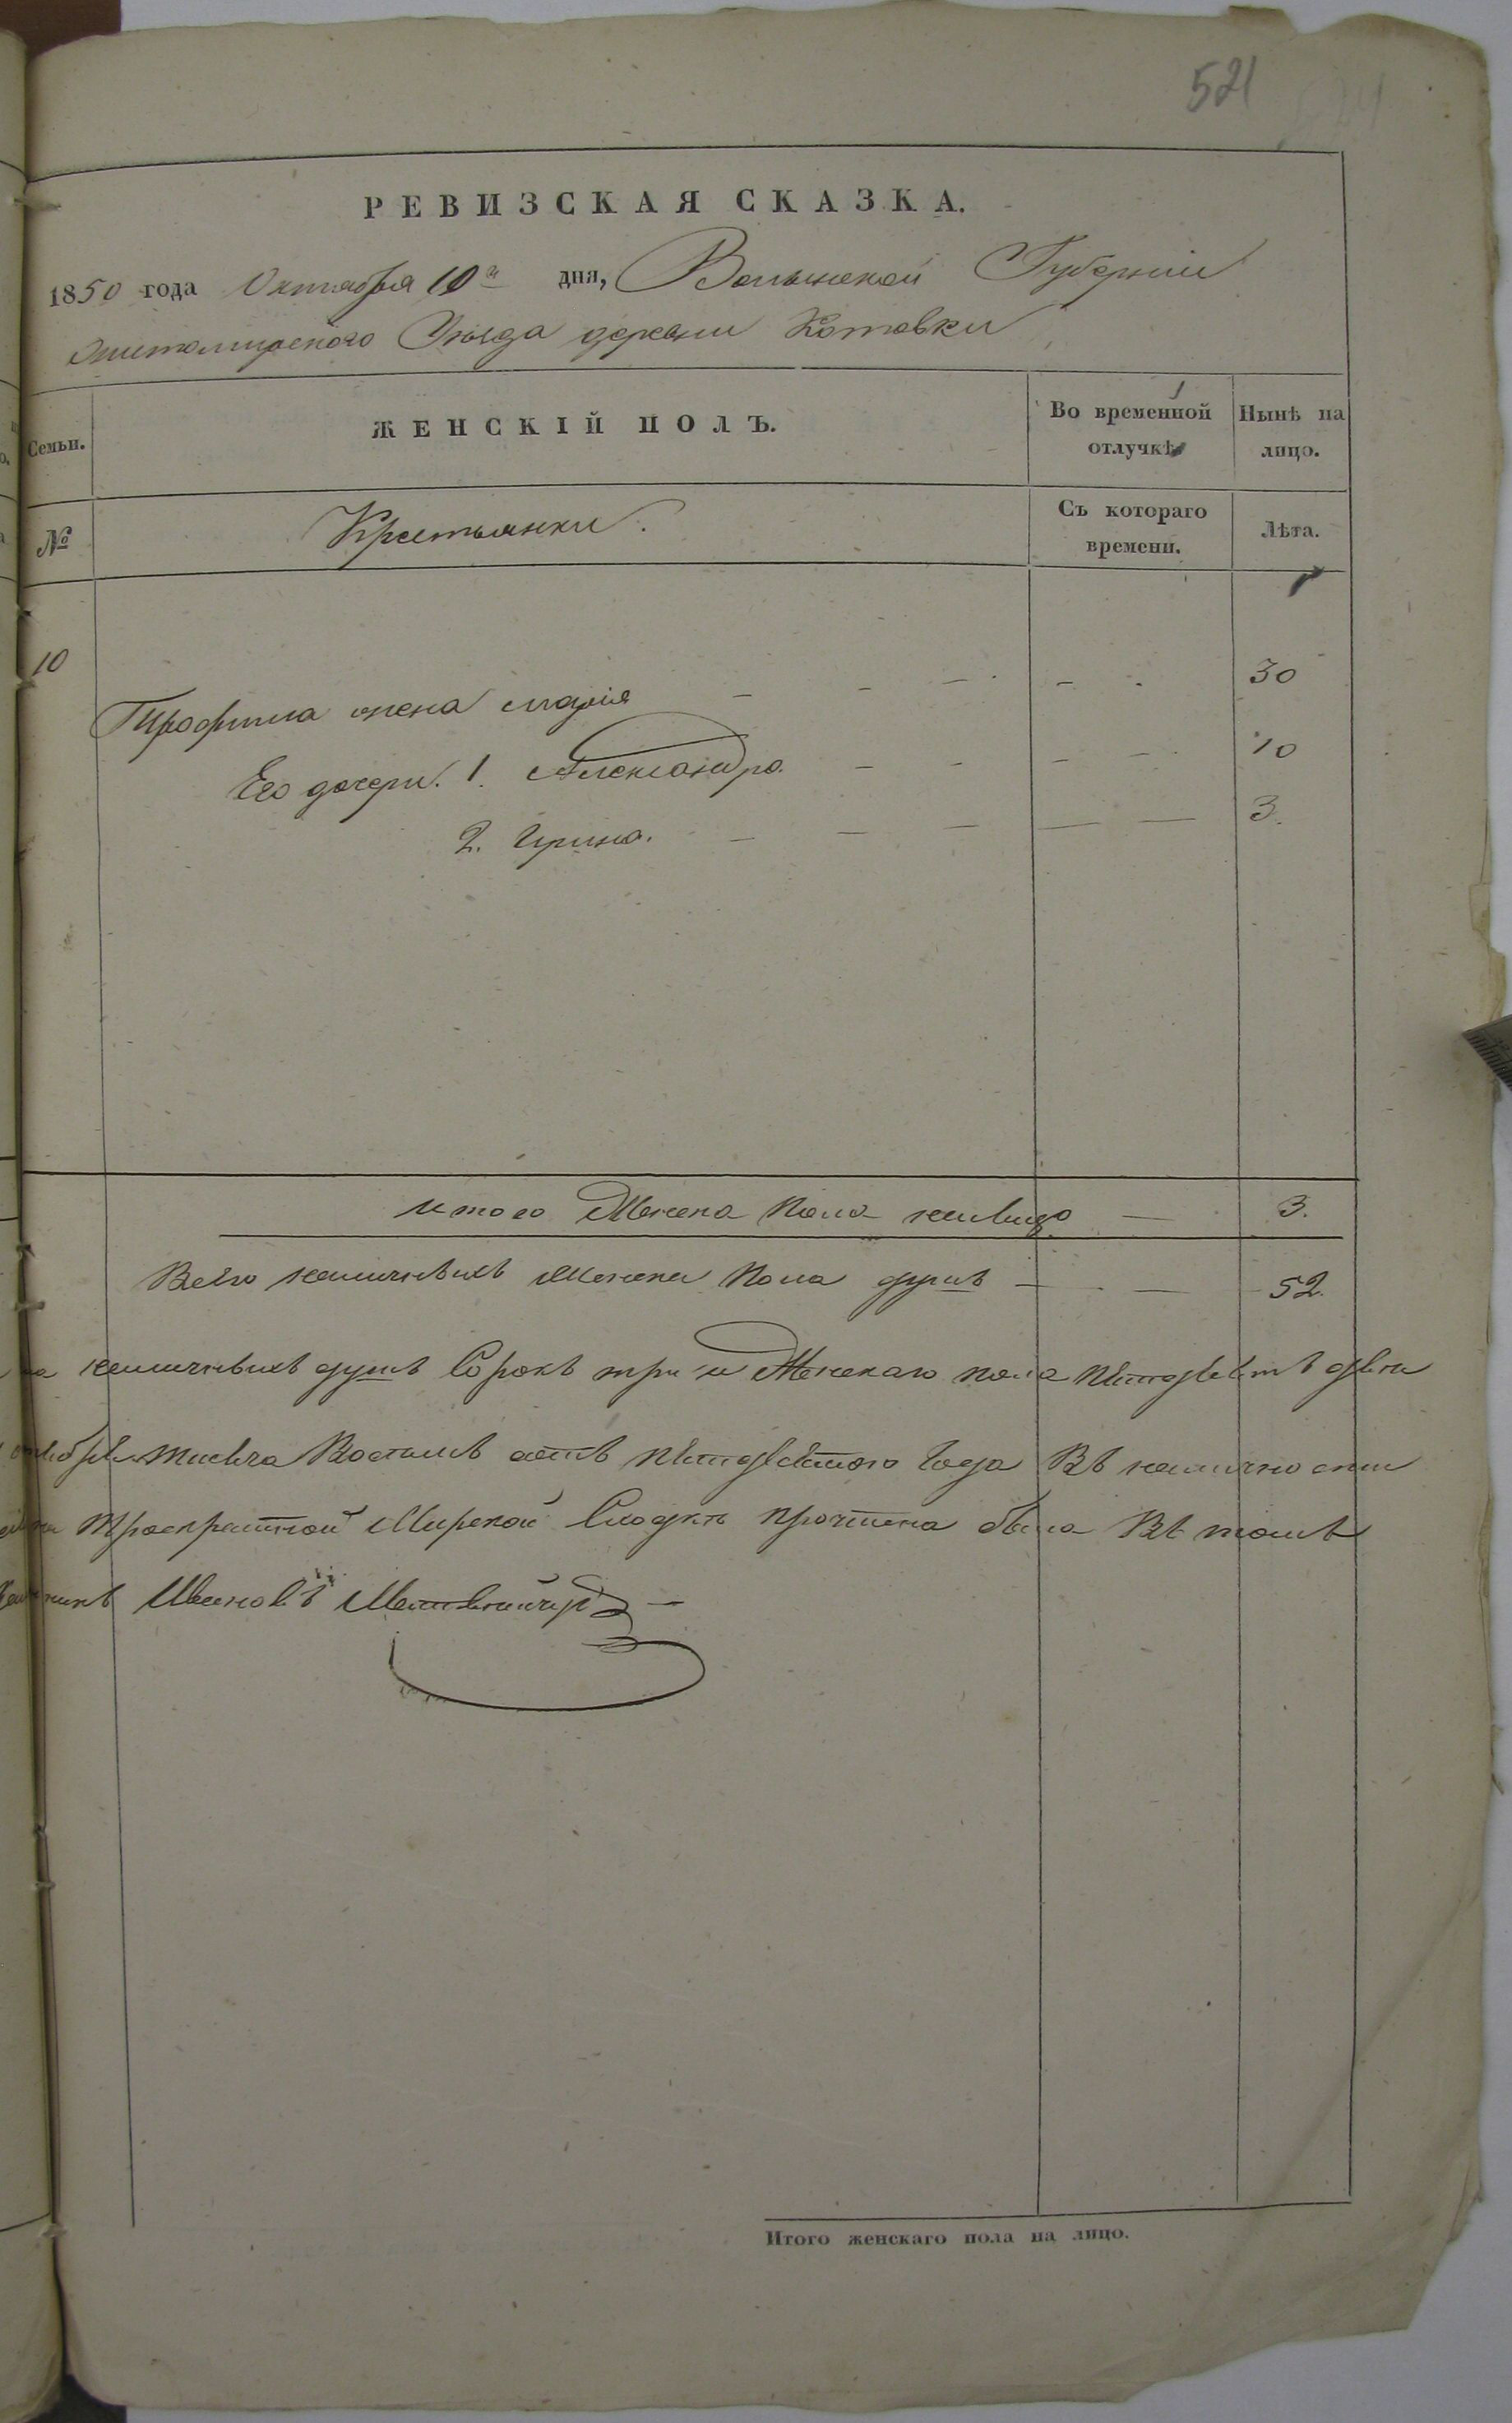 521
РЕВИЗСКАЯ СКАЗКА.
1850 года Октября 10го дня, Волынской Губерніи
Житомирского Уѣзда деревни Котовки
Семьи.
ЖЕНСКІЙ ПОЛЪ.
Во временной отлучкѣ
Нынѣ на лицо.
№
Крестьянки.
Съ котораго времени.
Лѣта.
10
Трофима жена Марія 30
Его дочери. 1. Александра. 10
2. Ирина. 3.
Итого Женска Пола налицо 3.
Всего наличныхъ Женска Пола душъ 52.
наличныхъ душъ Сорокъ три и Женскаго пола Пятдесятъ двѣ
Тисяча Восемъ сотъ Пятдесятого Года Въ наличности
Троекратной Мирской Сходки прочтена была Въ томъ
Ивановъ
Итого женскаго пола на лицо.